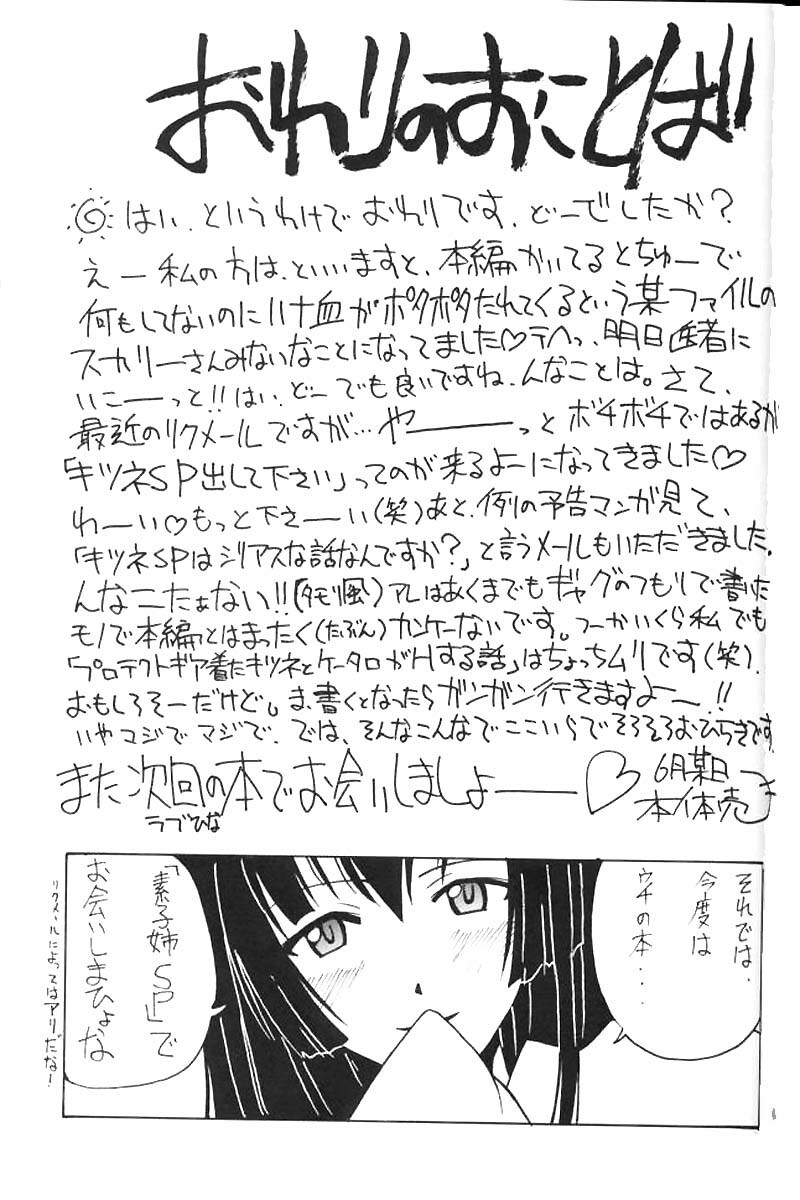 おわりのおことば
はい、というわけでおわりです、どーでしたか？
えー私の方は、といいますと、本編かいてるとちゅーで
何もしてないのにハナ血がポタポタたれてくるという某ファイルの
スカリーさんみないなことになってました♡テヘっ、明日医者に
いこーーっと!!はい、どーでも良いですね、んなことは。さて、
最近のリクメールですが…やーーーっとボチボチではあるが
「キツネSP出して下さい」ってのが来るよーになってきました♡
わーい♡もっと下さーい(笑)あと、例の予告マンガ見て、
「キツネSPはシリアスな話なんですか？」と言うメールもいただきました。
んなこたぁない!!(タモリ風)アレはあくまでもギャグのつもりで書いた
モノで本編とはまったく(たぶん)カンケーないです。つーかいくら私でも
「プロテクトギア着たキツネとケータロがHする話」はちょっちムリです(笑)．
おもしろそーだけど。ま、書くとなったらガンガン行きますよー!!
いやマジでマジで．では、そんなこんなでここいらでそろそろおひらきです
また次回の本でお会いしましょーーー♡
ラブひな
6月某日
本体売
つき
それでは、
今度は
ウチの本...
「素子姉SP」で
お会いしまひょな
リクメールによってはアリだな！